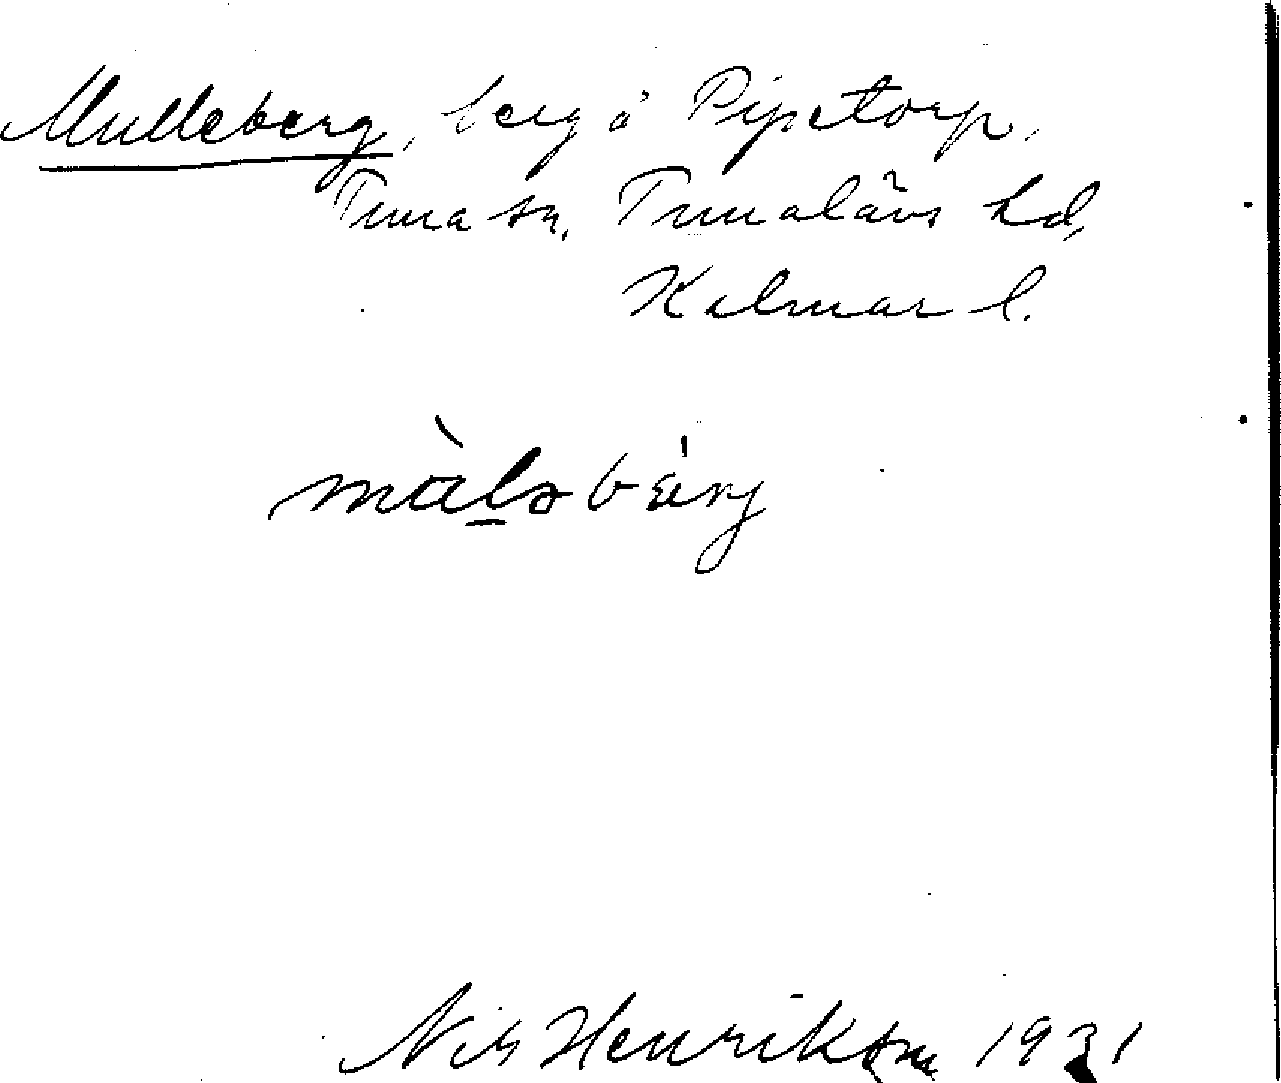 Mulleberg, berg å Pipetorp,
Tuna sn, Tunaläns hd,
Kalmar l.
Nils Henriksson 1931